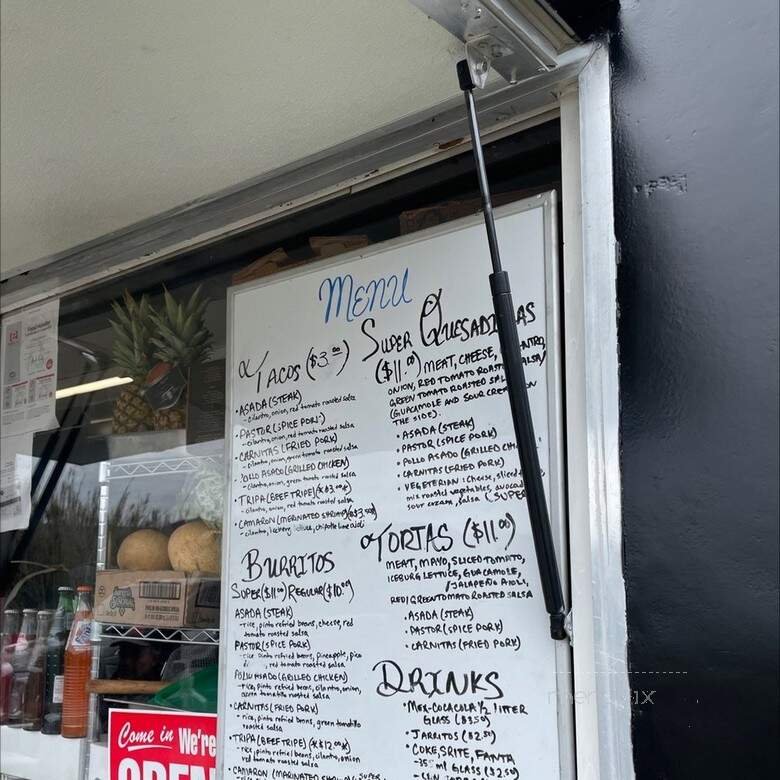 MENU
TACOS ($3.00)
• ASADA (STEAK)
- cilantro, onion, red tomato roasted salsa
• PASTOR (SPICE PORK)
- cilantro, onion, red tomato roasted salsa
• CARNITAS (FRIED PORK)
- cilantro, onion, green tomato roasted salsa
• POLLO ASADO (GRILLED CHICKEN)
- cilantro, onion, green tomato roasted salsa
• TRIPA (BEEF TRIPE)
- cilantro, onion, red tomato roasted salsa
• CAMARON (MERINATED SHRIMP) ($3.50)
- cilantro, iceberg lettuce, chipotle lime aioli
BURRITOS
SUPER ($11.00) REGULAR ($10.00)
ASADA (STEAK)
- rice, pinto refried beans, cheese, red
tomato roasted salsa
PASTOR (SPICE PORK)
- rice pinto refried beans, pineapple, pico
red tomato roasted salsa
POLLO ASADO (GRILLED CHICKEN)
- rice, pinto refried beans, cilantro, onion,
green tomato roasted salsa
• CARNITAS (FRIED PORK)
- rice, pinto refried beans, green tomatillo
roasted salsa
• TRIPA (BEEF TRIPE) ($12.00)
- rice, pinto refried beans, cilantro, onion
red tomato roasted salsa
CAMARON (MARINATED SHRIMP) SUPER
SUPER QUESADILLAS
($11.00) MEAT, CHEESE,
ONION, RED TOMATO ROASTED SALSA/
GREEN TOMATO ROASTED
(GUACAMOLE AND SOUR CREAM ON
THE SIDE).
• ASADA (STEAK)
• PASTOR (SPICE PORK)
• POLLO ASADO (GRILLED
• CARNITAS (FRIED PORK)
• VEGETERIAN (cheese, sliced
mix roasted vegetables, avocado
sour cream, salsa (SUPER
TORTAS ($11.00)
MEAT, MAYO, SLICED TOMATO,
ICEBURG LETTUCE, GUACAMOLE,
/JALAPEÑO AIOLI,
RED/GREEN TOMATO ROASTED SALSA
• ASADA (STEAK)
• PASTOR (SPICE PORK)
• CARNITAS (FRIED PORK)
DRINKS
• MEX-COCACOLA 1/2 LITTER
GLASS ($3.50)
• JARRITOS ($2.50)
• COKE, SRITE, FANTA
ml GLASS ($2.50)
Come in We're
OPEN